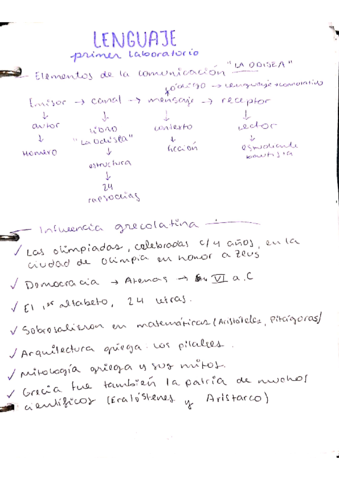 LENGUAJE
primer laboratorio
Elementos de la comunicación "LA ODISEA"
código → Lenguaje
Emisor → canal → mensaje → receptor
autor libro contexto lector
Homero "La odisea" ficción estudiante
estructura
24
rapsodias
Influencia grecolatina
✓ Las olimpiadas, celebradas c/4 años, en la
ciudad de Olimpia en honor a Zeus
✓ Democracia → Atenas → VI a.C
✓ El 1er alfabeto, 24 letras.
✓ Sobresalieron en matemáticas (Aristóteles, Pitágoras)
✓ Arquitectura griega: los pilares.
✓ Mitología griega y sus mitos.
✓ Grecia fue también la patria de muchos
científicos (Eratóstenes y Aristarco)